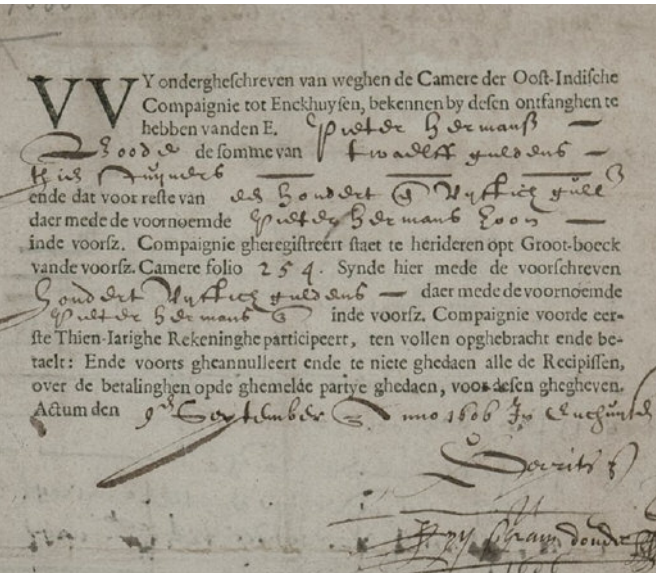 VVY ondergheschreven van weghen de Camere der Oost-Indische
Compaignie tot Enckhuysen, bekennen by desen ontfanghen te
hebben vanden E. Pieter Hermansz —
Boode de somme van twaelff guldens —
thien stuyvers — — —
ende dat voor reste van een hondert @ vyftich gull
daer mede de voornoemde Pieter Hermans Zoon —
inde voorsz. Compaignie gheregistreert staet te herideren opt Groot-boeck
vande voorsz. Camere folio 254. Synde hier mede de voorschreven
hondert vyftich guldens — daer mede de voornoemde
Pieter Hermans inde voorsz. Compaignie voorde eer-
ste Thien-Iarighe Rekeninghe participeert, ten vollen opghebracht ende be-
taelt: Ende voorts gheannulleert ende te niete ghedaen alle de Recipissen,
over de betalinghen opde ghemelde partye ghedaen, voor desen ghegheven.
Actum den 9en September Anno 1606 In